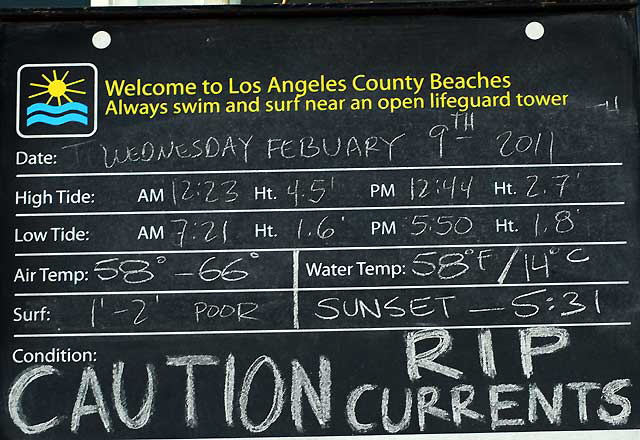 Welcome to Los Angeles County Beaches
Always swim and surf near an open lifeguard tower
Date: WEDNESDAY FEBUARY 9TH 2011
High Tide: AM 12:23 Ht. 4.5' PM 12:44 Ht. 2.7'
Low Tide: AM 7:21 Ht. 1.6' PM 5:50 Ht. 1.8'
Air Temp: 58° - 66° Water Temp: 58°F / 14°C
Surf: 1'-2' POOR SUNSET - 5:31
Condition:
CAUTION RIP
CURRENTS